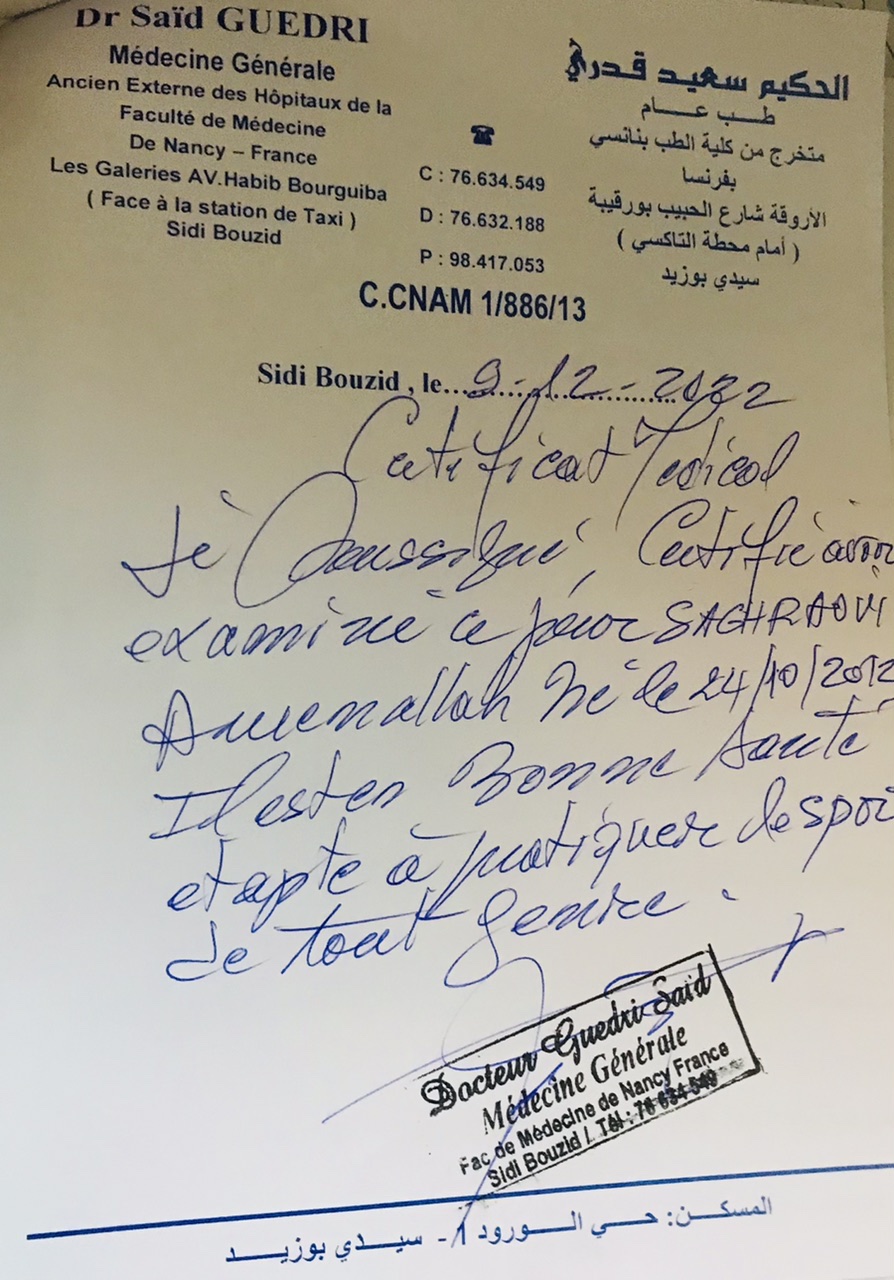 Dr Saïd GUEDRI
Médecine Générale
Ancien Externe des Hôpitaux de la
Faculté de Médecine
De Nancy – France
Les Galeries AV.Habib Bourguiba
( Face à la station de Taxi )
Sidi Bouzid
☎
C : 76.634.549
D : 76.632.188
P : 98.417.053
الحكيم سعيد قدري
طب عام
متخرج من كلية الطب بنانسي
بفرنسا
الأروقة شارع الحبيب بورقيبة
( أمام محطة التاكسي )
سيدي بوزيد
C.CNAM 1/886/13
Sidi Bouzid , le...9-12-2022
Certificat Medical
Je Soussigné, Certifie avoir
examiné ce jour SAGHRAOUI
Amenallah Né le 24/10/2012
Il est en Bonne Santé
et apte à pratiquer le spor
de tout genre.
Docteur Guedri Said
Médecine Générale
Fac de Médecine de Nancy France
Sidi Bouzid / Tél : 76 634 549
المسكن: حي الورود 1 - سيدي بوزيد